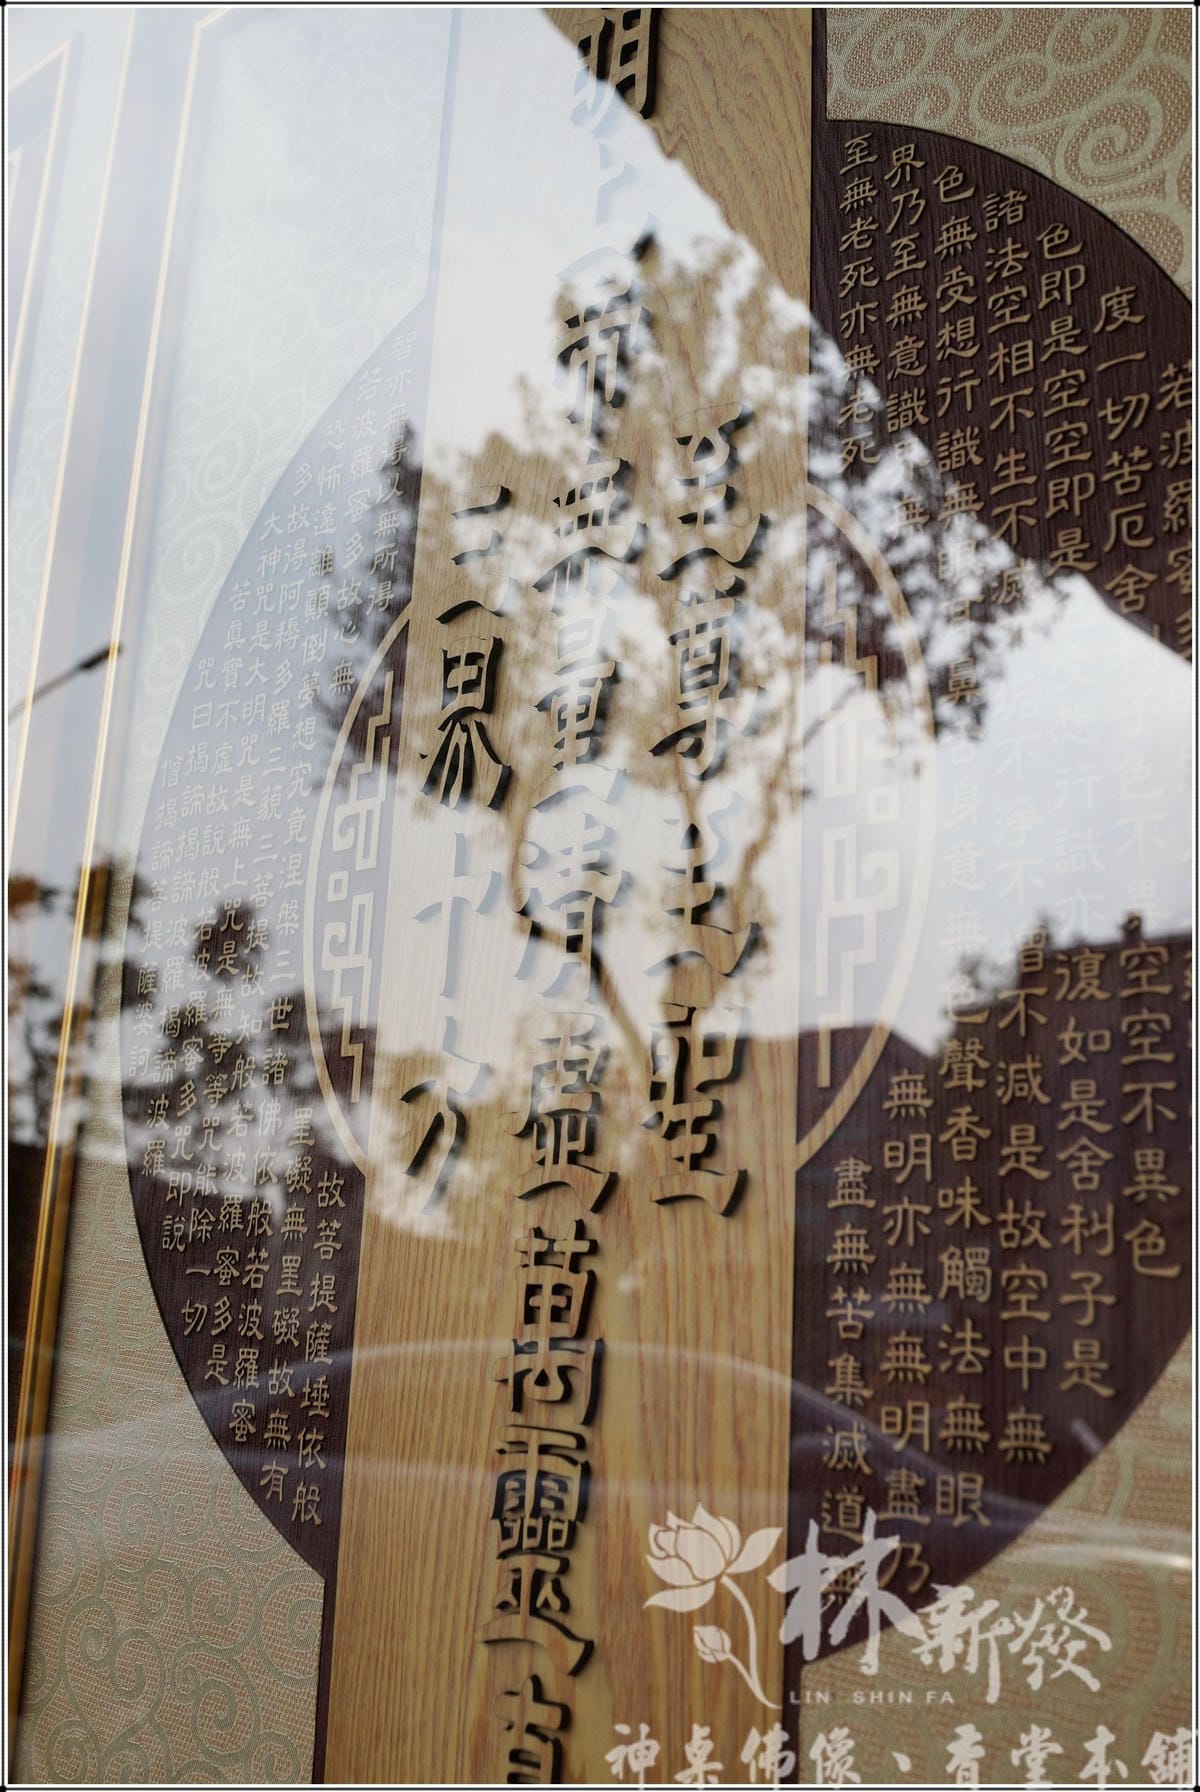 若波羅蜜多
度一切苦厄舍利子色不異空空不異色
色即是空空即是
受想行識亦復如是舍利子是
諸法空相不生不滅
不淨不增不減是故空中無
色無受想行識無眼耳鼻舌身意無色聲香味觸法無眼
界乃至無意識界無
無明亦無無明盡乃
至無老死亦無老死
盡無苦集滅道無
至尊至聖
明上帝無量清虛萬靈真
三界十方
智亦無得以無所得
故菩提薩埵依般
若波羅蜜多故心無
罣礙無罣礙故無有
恐怖遠離顛倒夢想究竟涅槃三世諸佛依般若波羅蜜
多故得阿耨多羅三藐三菩提故知般若波羅蜜多是
大神咒是大明咒是無上咒是無等等咒能除一切
苦真實不虛故說般若波羅蜜多咒即說
咒曰揭諦揭諦波羅揭諦波羅
僧揭諦菩提薩婆訶
林新發
LIN SHIN FA
神桌佛像、香堂本舖